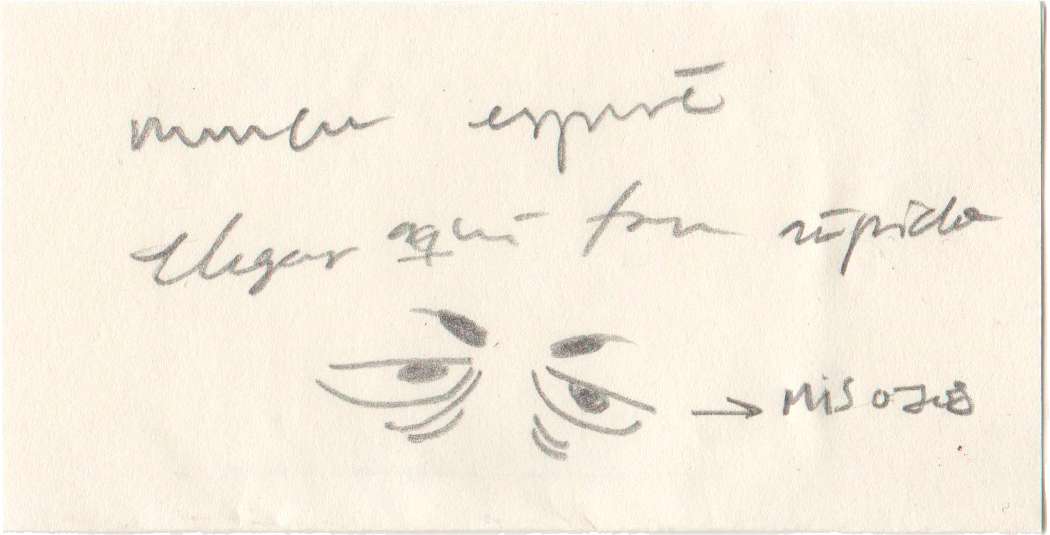 nunca esperé
llegar aquí tan rápido
→ MIS OJOS